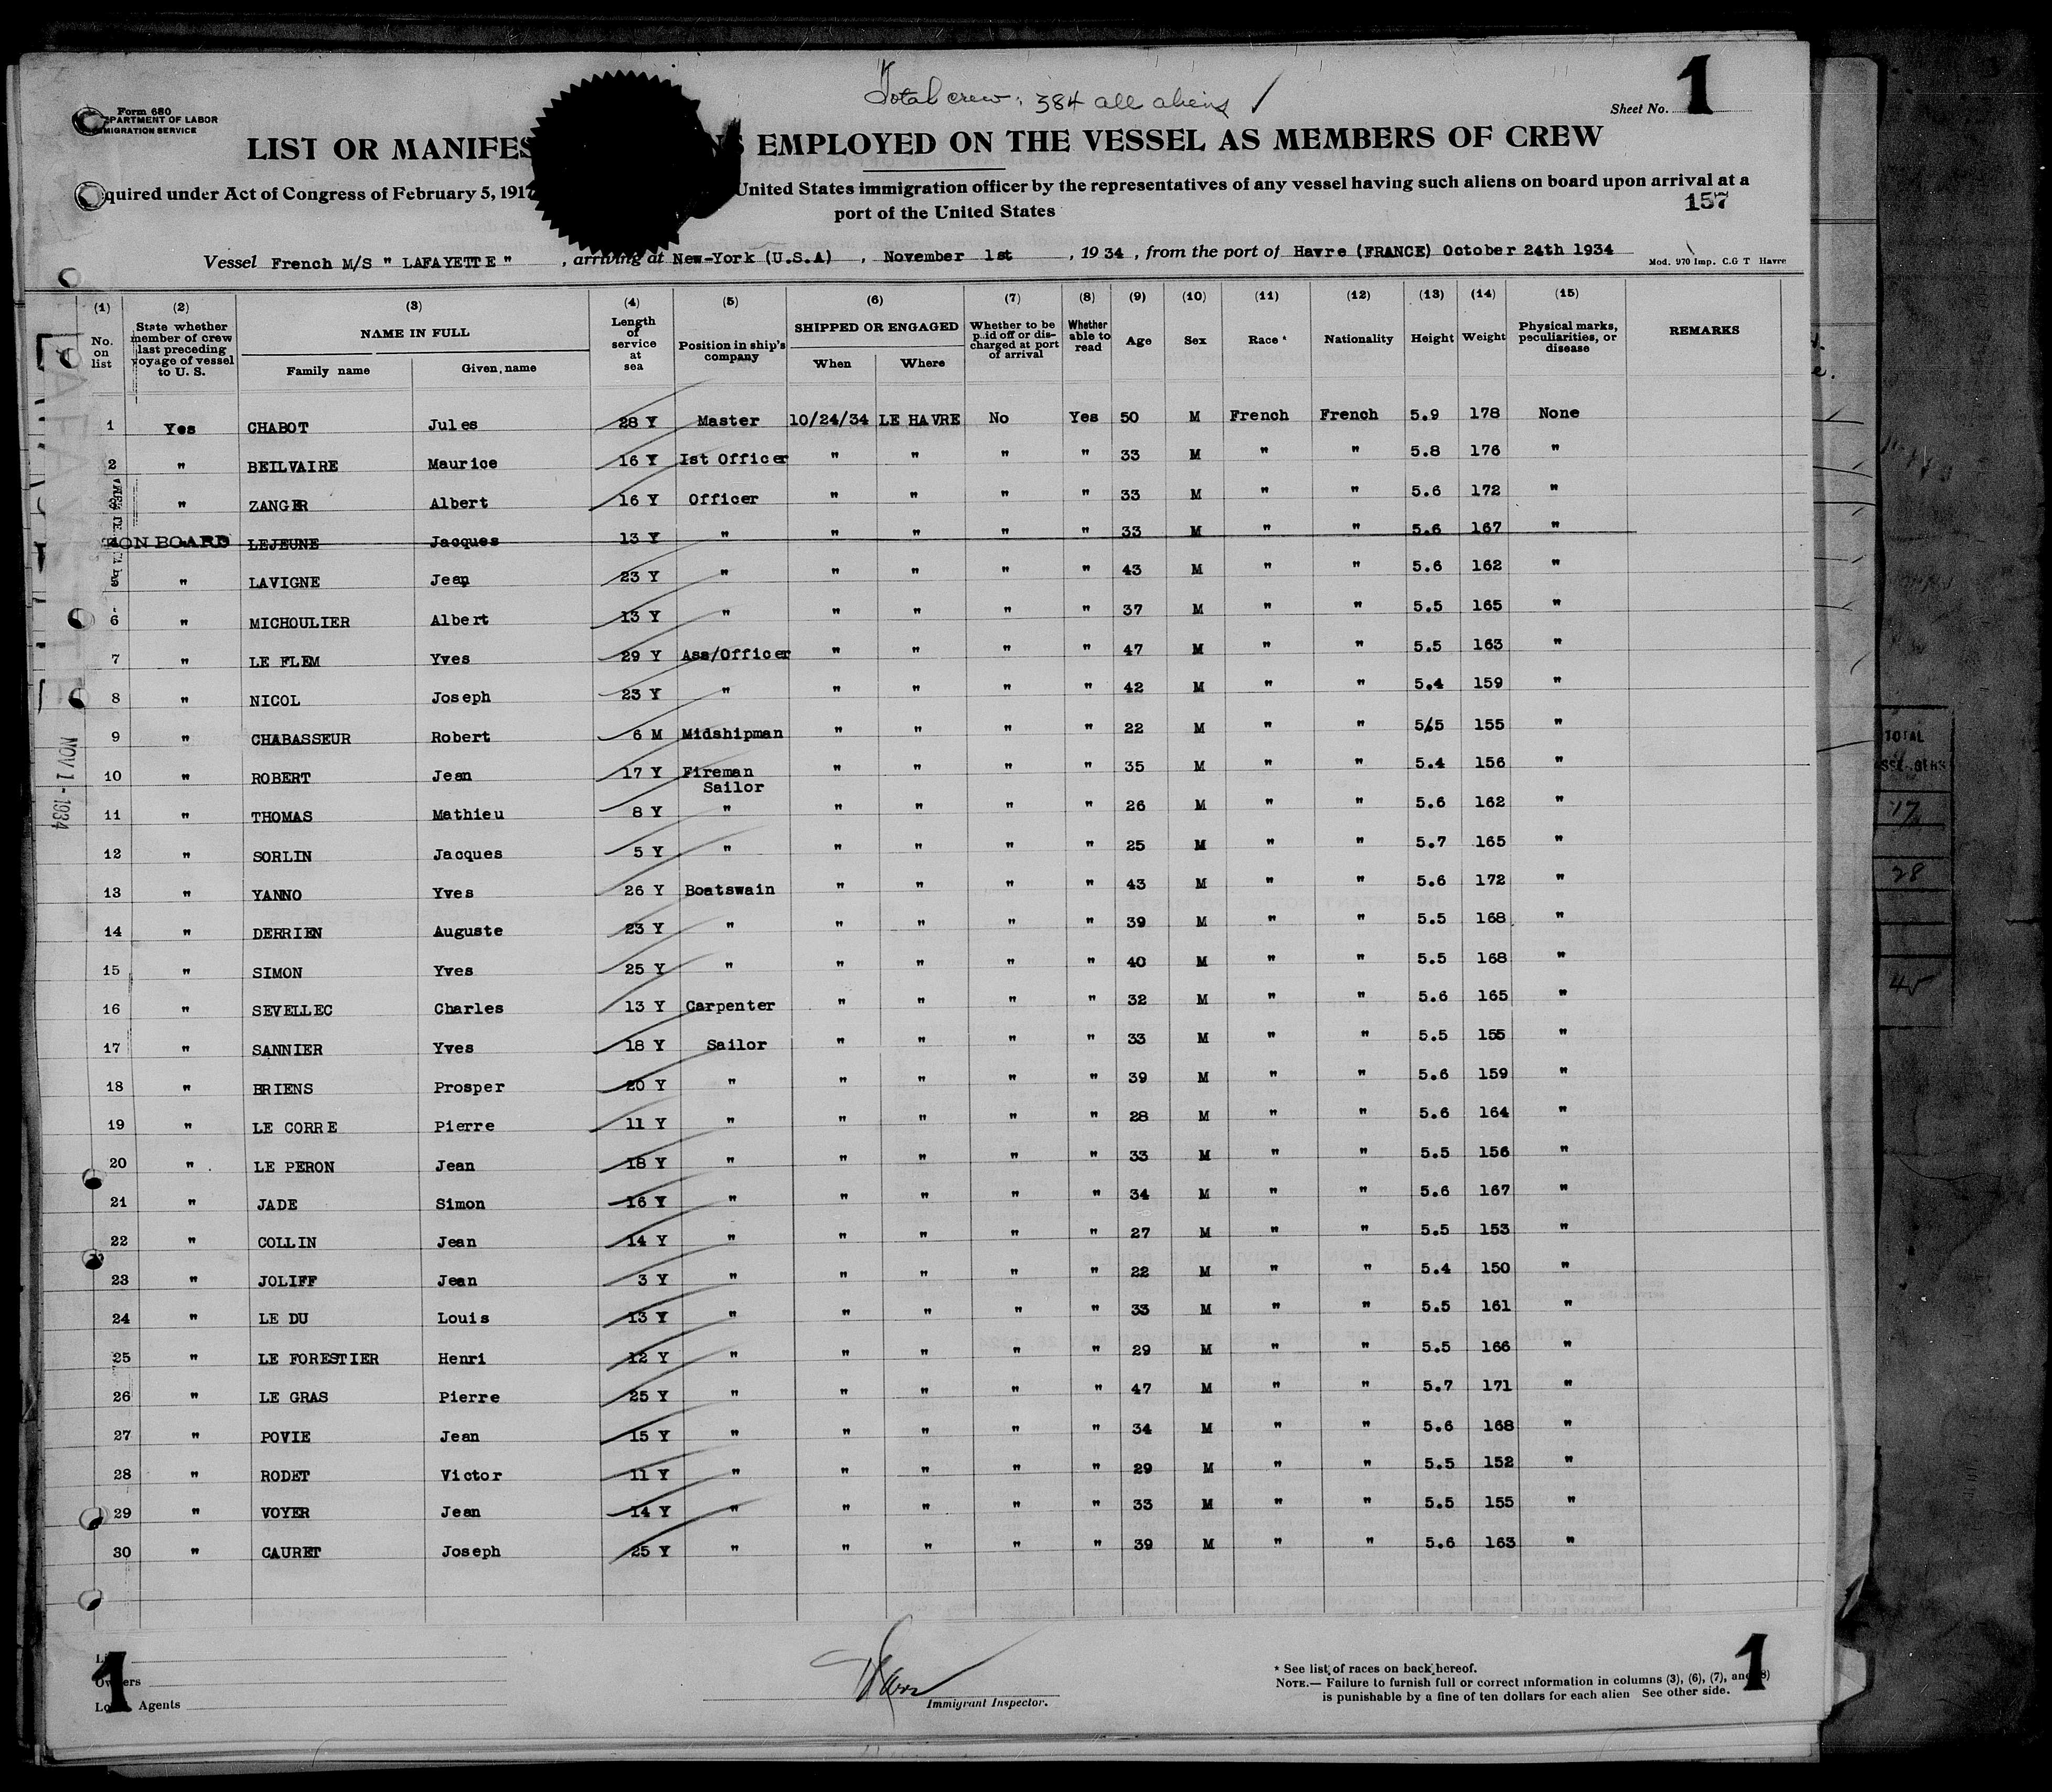 Total crew: 384 all aliens
Form 680
DEPARTMENT OF LABOR
IMMIGRATION SERVICE
Sheet No. 1
LIST OR MANIFES EMPLOYED ON THE VESSEL AS MEMBERS OF CREW
quired under Act of Congress of February 5, 1917 United States immigration officer by the representatives of any vessel having such aliens on board upon arrival at a
port of the United States
157
Vessel French M/S " LAFAYETTE " , arriving at New-York (U.S.A) , November 1st , 1934 , from the port of Havre (FRANCE) October 24th 1934
Mod. 970 Imp. C.G T Havre
(1) (2) (3) (4) (5) (6) (7) (8) (9) (10) (11) (12) (13) (14) (15)
No. on list State whether member of crew last preceding voyage of vessel to U. S. NAME IN FULL Length of service at sea Position in ship's company SHIPPED OR ENGAGED Whether to be paid off or discharged at port of arrival Whether able to read Age Sex Race * Nationality Height Weight Physical marks, peculiarities, or disease REMARKS
Family name Given name When Where
1 Yes CHABOT Jules 28 Y Master 10/24/34 LE HAVRE No Yes 50 M French French 5.9 178 None
2 " BEILVAIRE Maurice 16 Y Ist Officer " " " " 33 M " " 5.8 176 "
" ZANGER Albert 16 Y Officer " " " " 33 M " " 5.6 172 "
ON BOARD LEJEUNE Jacques 13 Y " " " " " 33 M " " 5.6 167 "
5 " LAVIGNE Jean 23 Y " " " " " 43 M " " 5.6 162 "
6 " MICHOULIER Albert 13 Y " " " " " 37 M " " 5.5 165 "
7 " LE FLEM Yves 29 Y Ass/Officer " " " " 47 M " " 5.5 163 "
8 " NICOL Joseph 23 Y " " " " " 42 M " " 5.4 159 "
9 " CHABASSEUR Robert 6 M Midshipman " " " " 22 M " " 5/5 155 "
10 " ROBERT Jean 17 Y Fireman " " " " 35 M " " 5.4 156 "
Sailor
11 " THOMAS Mathieu 8 Y " " " " " 26 M " " 5.6 162 "
12 " SORLIN Jacques 5 Y " " " " " 25 M " " 5.7 165 "
13 " YANNO Yves 26 Y Boatswain " " " " 43 M " " 5.6 172 "
14 " DERRIEN Auguste 23 Y " " " " " 39 M " " 5.5 168 "
15 " SIMON Yves 25 Y " " " " " 40 M " " 5.5 168 "
16 " SEVELLEC Charles 13 Y Carpenter " " " " 32 M " " 5.6 165 "
17 " SANNIER Yves 18 Y Sailor " " " " 33 M " " 5.5 155 "
18 " BRIENS Prosper 20 Y " " " " " 39 M " " 5.6 159 "
19 " LE CORRE Pierre 11 Y " " " " " 28 M " " 5.6 164 "
20 " LE PERON Jean 18 Y " " " " " 33 M " " 5.5 156 "
21 " JADE Simon 16 Y " " " " " 34 M " " 5.6 167 "
22 " COLLIN Jean 14 Y " " " " " 27 M " " 5.5 153 "
23 " JOLIFF Jean 3 Y " " " " " 22 M " " 5.4 150 "
24 " LE DU Louis 13 Y " " " " " 33 M " " 5.5 161 "
25 " LE FORESTIER Henri 12 Y " " " " " 29 M " " 5.5 166 "
26 " LE GRAS Pierre 25 Y " " " " " 47 M " " 5.7 171 "
27 " POVIE Jean 15 Y " " " " " 34 M " " 5.6 168 "
28 " RODET Victor 11 Y " " " " " 29 M " " 5.5 152 "
29 " VOYER Jean 14 Y " " " " " 33 M " " 5.5 155 "
30 " CAURET Joseph 25 Y " " " " " 39 M " " 5.6 163 "
NOV 1 - 1934
LAFAYETTE
TOTAL
17
28
45
1
Owners
Agents
Immigrant Inspector.
* See list of races on back hereof.
NOTE.— Failure to furnish full or correct information in columns (3), (6), (7), and (8)
is punishable by a fine of ten dollars for each alien See other side.
1